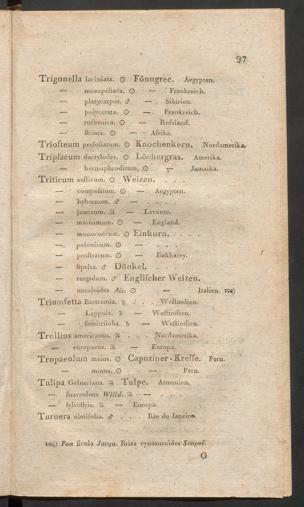 97
Trigonella laciniata. ☉ Fönugrec. Aegypten.
— monspeliaca. ☉ — Frankreich.
— platycarpos. ♂ — Sibirien.
— polycerata. ☉ — Frankreich.
— ruthenica. ☉ — Rußland.
— striata. ☉ — Afrika.
Triosteum perfoliatum. ☉ Knochenkern. Nordamerika.
Tripsacum dactyloides. ☉ Löchergras. Amerika.
— hermaphroditum. ☉ — Jamaika.
Triticum aestivum. ☉ Weizen. . . . .
— compositum. ☉ — Aegypten.
— hybernum. ♂ — . . . .
— junceum. ♃ — Levante.
— maximum. ☉ — England.
— monococcum. ☉ Einkorn. . . . .
— polonicum. ☉ — . . . .
— prostratum. ☉ — Bukharey.
— Spelta. ♂ Dünkel. . . . .
— turgidum. ♂ Englischer Weizen.
— unioloides Ait. ☉ — Italien. 104)
Triumfetta Bartramia. ♄ . . . Westindien.
— Lappula. ♄ — Westindien.
— semitriloba. ♄ — Westindien.
Trollius americanus. ♃ . . . Nordamerika.
— europaeus. ♃ — Europa.
Tropaeolum maius. ☉ Capuziner-Kresse. Peru.
— minus. ☉ — Peru.
Tulipa Gesneriana. ♃ Tulpe. Armenien.
— suaveolens Willd. ♃ — . . . .
— sylvestris. ♃ — Europa.
Turnera ulmifolia. ♂ . . . Rio de Janeiro.
104) Poa sicula Jacqu. Briza cynosuroides Scopol.
G